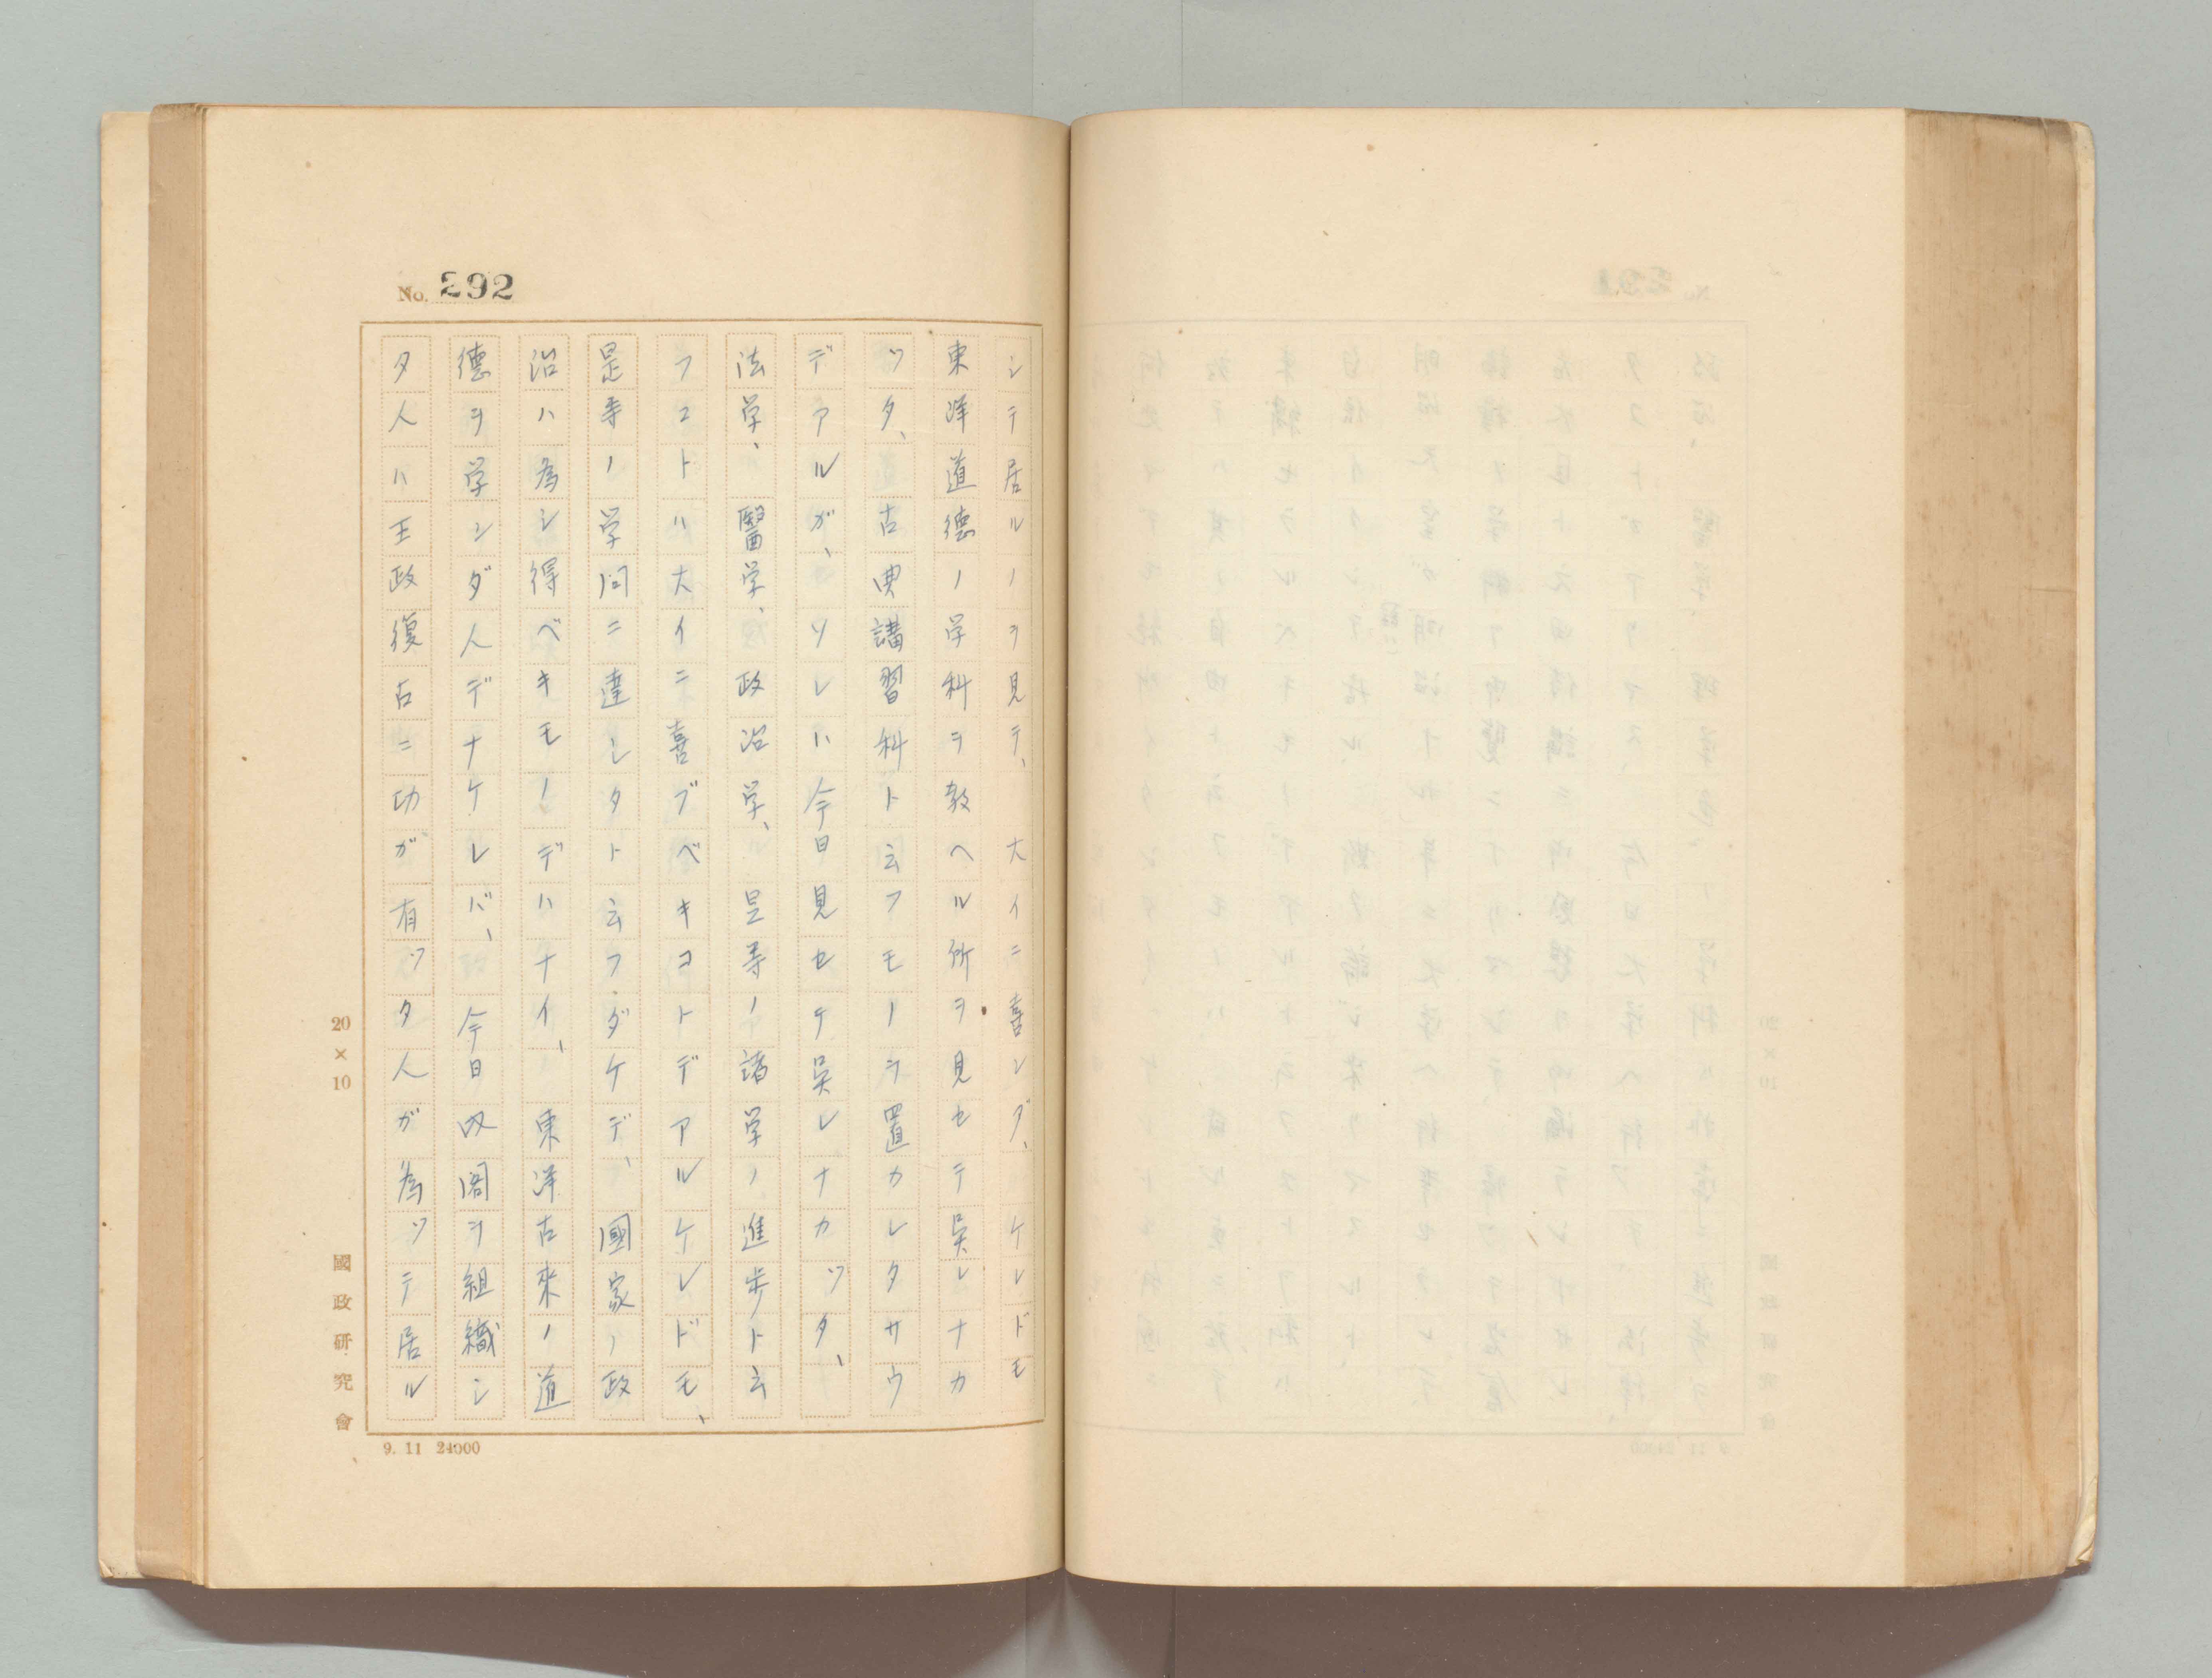 No. 292
シテ居ルノヲ見テ、大イニ喜ンダ、ケレドモ
東洋道德ノ学科ヲ敎ヘル所ヲ見セテ吳レナカ
ツタ、古典講習科ト云フモノヲ置カレタサウ
デアルガ、ソレハ今日見セテ吳レナカツタ、
法学、醫学、政治学、是等ノ諸学ノ進步ト云
フコトハ大イニ喜ブベキコトデアルケレドモ、
是等ノ学問ニ達シタト云フダケデ、國家ノ政
治ハ為シ得ベキモノデハナイ、東洋古來ノ道
德ヲ学ンダ人デナケレバ、今日內閣ヲ組織シ
タ人ハ王政復古ニ功ガ有ツタ人ガ為ツテ居ル
20×10
國政研究會
9. 11 24000